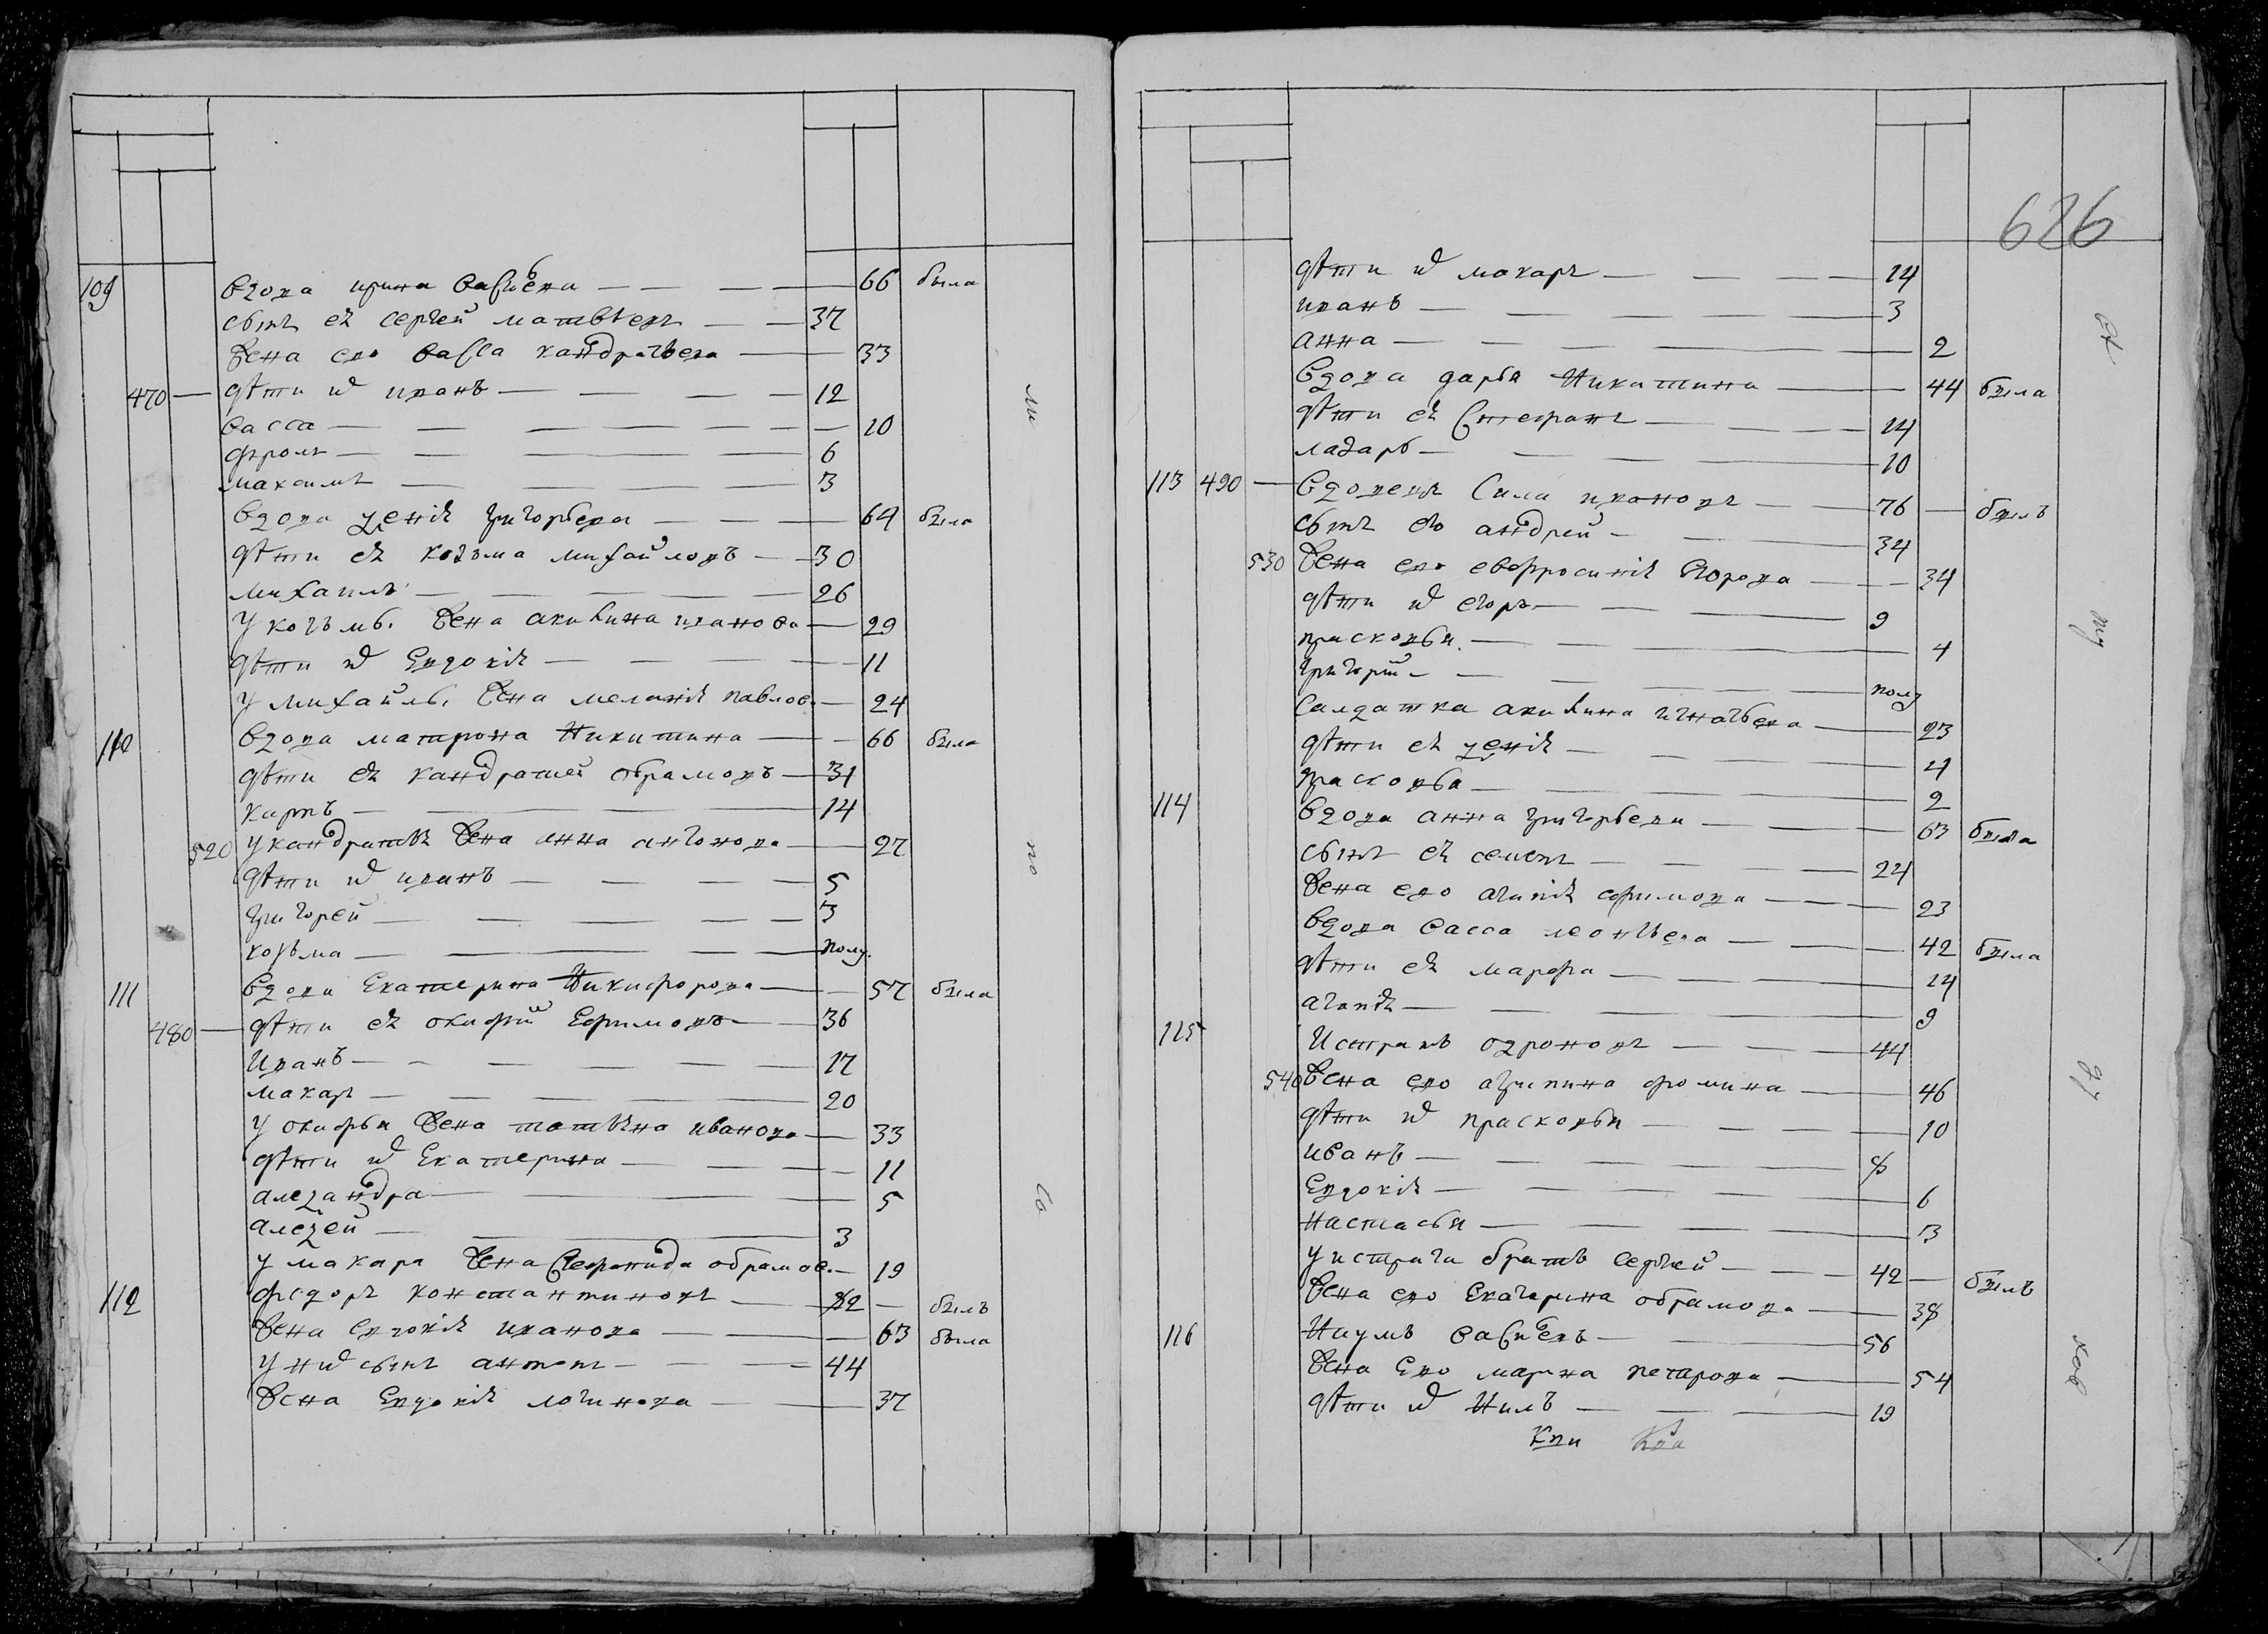 109 вдова ирина савиева 66 была
сынъ ея сергей матвѣевъ 37
жена ево васса кандратьева 33
470 дѣти их иванъ 12
васса 10
фролъ 6
максимъ 3
вдова ѯенія григорьева 64 была
дѣти ея козъма михайловъ 30
михаилъ 26
у козъмы жена акилина иванова 29
дѣти их Евдокія 11
у михайлы жена меланія павлов. 24
110 вдова матрона Никитина 66 была
дѣти ея кандратей обрамовъ 31
карпъ 14
520 у кандратья жена анна антонова 27
дѣти их иванъ 5
григорей 3
козьма полу.
111 вдова Екатерина Никифорова 57 была
480 дѣти ея окифий Ефимовъ 36
Иванъ 17
макаръ 20
у окифья жена татьяна иванова 33
дѣти их Екатерина 11
алеѯандра 5
алеѯей 3
у макара жена Степанида обрамов. 19
112 федоръ константиновъ 82 былъ
жена Евдокия иванова 63 была
у них сынъ антонъ 44
жена Евдокія логинова 37
ми
по
Со
626
дѣти их макаръ 14
иванъ 3
анна 2
вдова дарья Никитина 44 была
дѣти ея Степанъ 14
лазарь 10
113 490 вдовецъ Сила ивановъ 76 былъ
сынъ ево андрей 34
530 жена ево евфросинія Егорова 34
дѣти их егоръ 9
прасковья 4
григорий полу
Салдатка акилина игнатьева 23
дѣти ея ѯенія 4
прасковья 2
114 вдова анна григорьева 63 была
сынъ ея семенъ 24
жена ево агапія ефимова 23
вдова васса леонтьева 42 была
дѣти ея марфа 14
агапія 9
115 Истратъ 44
540 жена ево агрипина фомина 46
дѣти их прасковья 10
иванъ 8
Евдокія 6
настасья 3
у истрата братъ сергей 42 былъ
жена ево Екатерина обрамова 38
116 Наумъ савиевъ 56
жена Ево марина петрова 54
дѣти их Нилъ 19